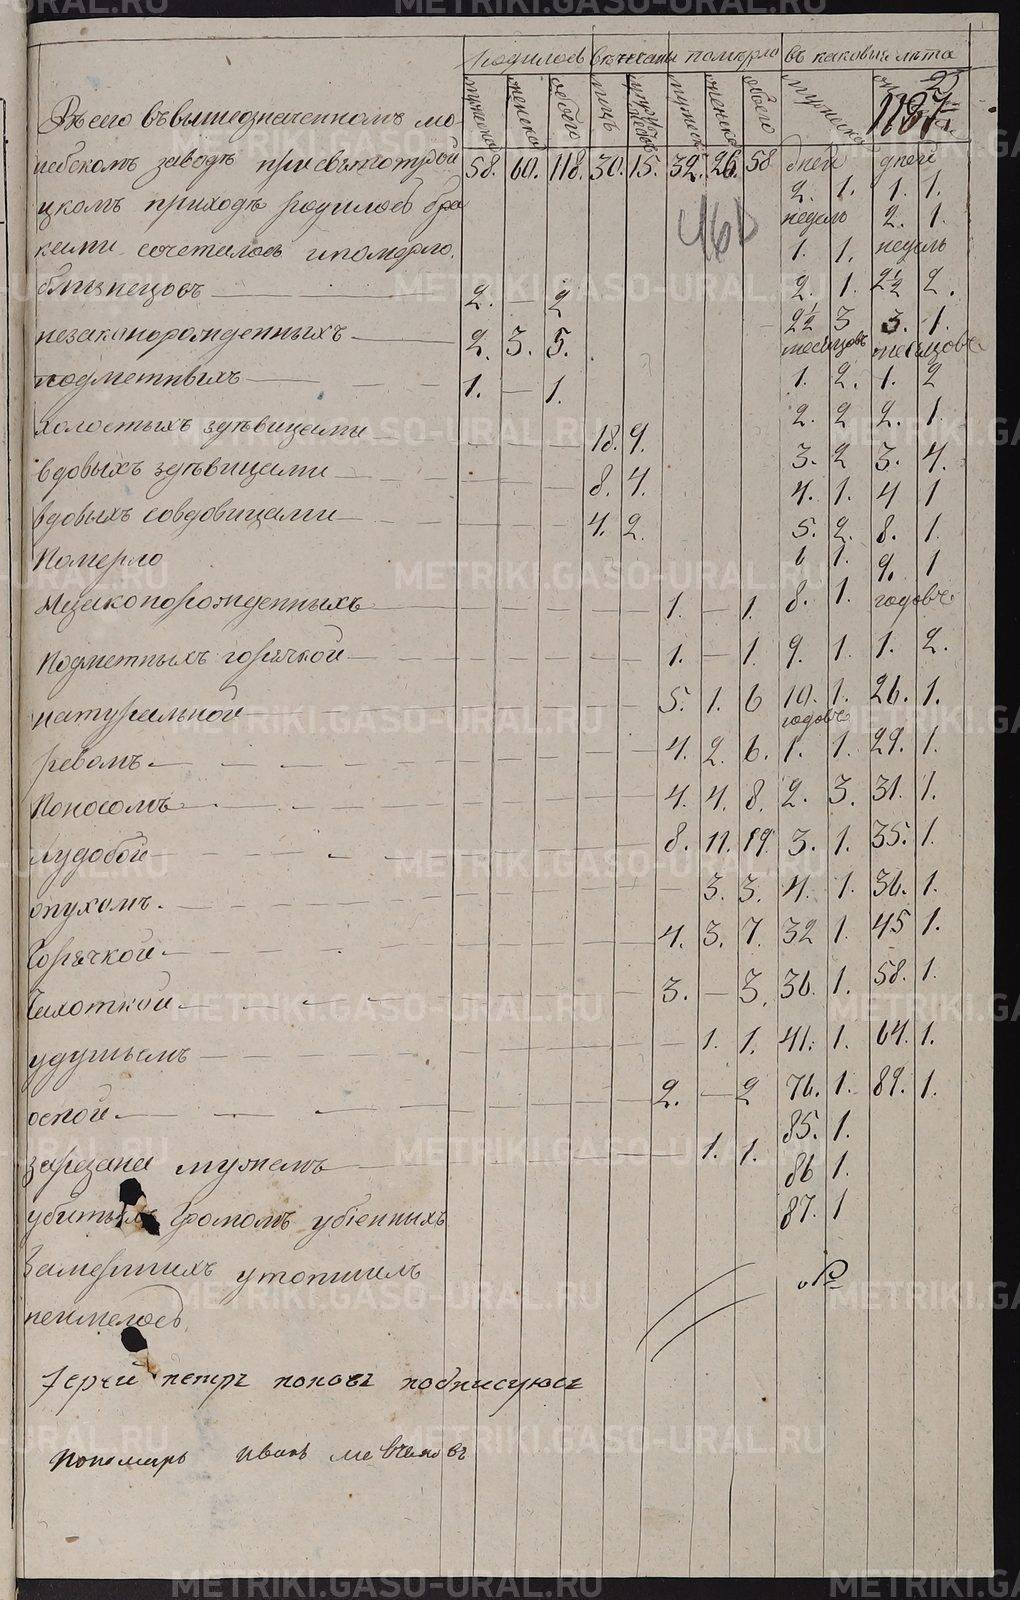 родилось вѣнчаны померло въ каковыя лѣта
мужеска женска обоего лицъ мужеска женска обоего мужска
1187
Всего въ вышеозначенномъ мо
небскомъ заводѣ при свѣтотрои 58. 60. 118. 30. 15. 32. 26. 58 дней дней
цкомъ приходѣ родилось бра 2. 1. 1. 1.
недель 2. 1.
ками сочеталось и померло. 1. 1. недель
461
близнецовъ 2. — 2 2. 1. 2½ 2.
незаконорожденныхъ 2. 3. 5. 2½ 3 3. 1.
месяцовъ месяцовъ
подметныхъ 1. — 1. 1. 2. 1. 2
холостыхъ здѣвицами 18. 9. 2. 2 2. 1.
вдовыхъ здѣвицами 8. 4. 3. 2 3. 4.
4. 1. 4 1
вдовыхъ совдовицами 4. 2. 5. 2. 8. 1.
Померло 6 1. 9. 1
незаконорожденныхъ 1. — 1. 8. 1. годовъ
Подметныхъ горячкой 1. — 1. 9. 1. 1. 2.
натуральной 5. 1. 6 10. 1. 26. 1.
годовъ
ревомъ 4. 2. 6. 1. 1. 29. 1.
Поносомъ 4. 4. 8. 2. 3. 31. 1.
худобой 8. 11. 19. 3. 1. 35. 1.
опухомъ. — 3. 3. 4. 1. 36. 1.
Горячкой 4. 3. 7. 32 1. 45 1.
Чахоткой 3. — 3. 36. 1. 58. 1.
удушьемъ — 1. 1. 41. 1. 64. 1.
оспой 2. — 2 76. 1. 89. 1.
85. 1.
зарезана мужемъ — 1. 1. 86 1.
убитыхъ громомъ убіенныхъ 87. 1
Замерших утопшихъ
неимелось.
Іерей петръ поповъ подписуюсь
пономарь иванъ
METRIKI.GASO-URAL.RU